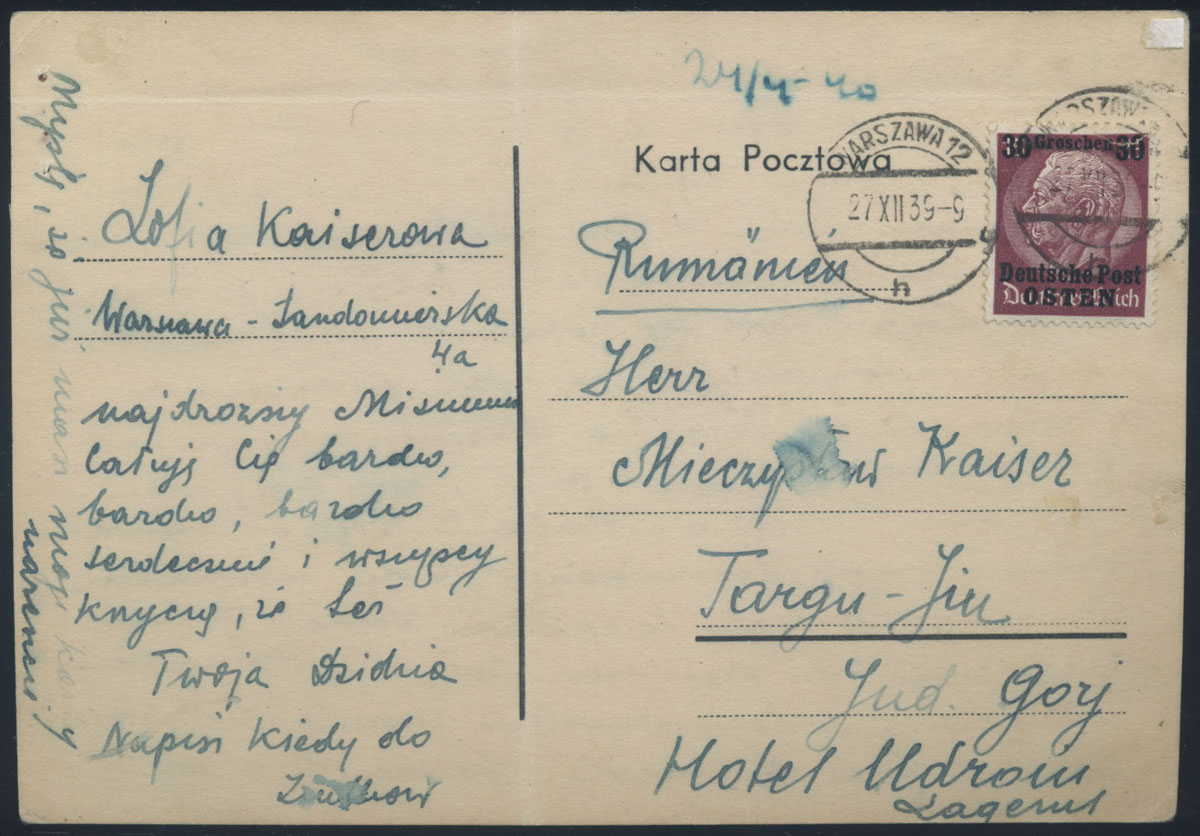 24/4-40
Karta Pocztowa
WARSZAWA 12
27XII39-9
h
WARSZAWA
h
30 Groschen 30
Deutsche Post
OSTEN
Deutsches Reich
Rumänien
Herr
Mieczysław Kaiser
Targu-Jiu
Jud. Gorj
Hotel
Zofia Kaiserowa
Warszawa - Sandomierska
4a
najdrozszy
całuję Cię bardzo,
bardzo, bardzo
serdecznie i wszyscy
krzyczą, że Leś
Twoja Dzidzia
Napisz kiedy do
Myślę, że już masz moje karty